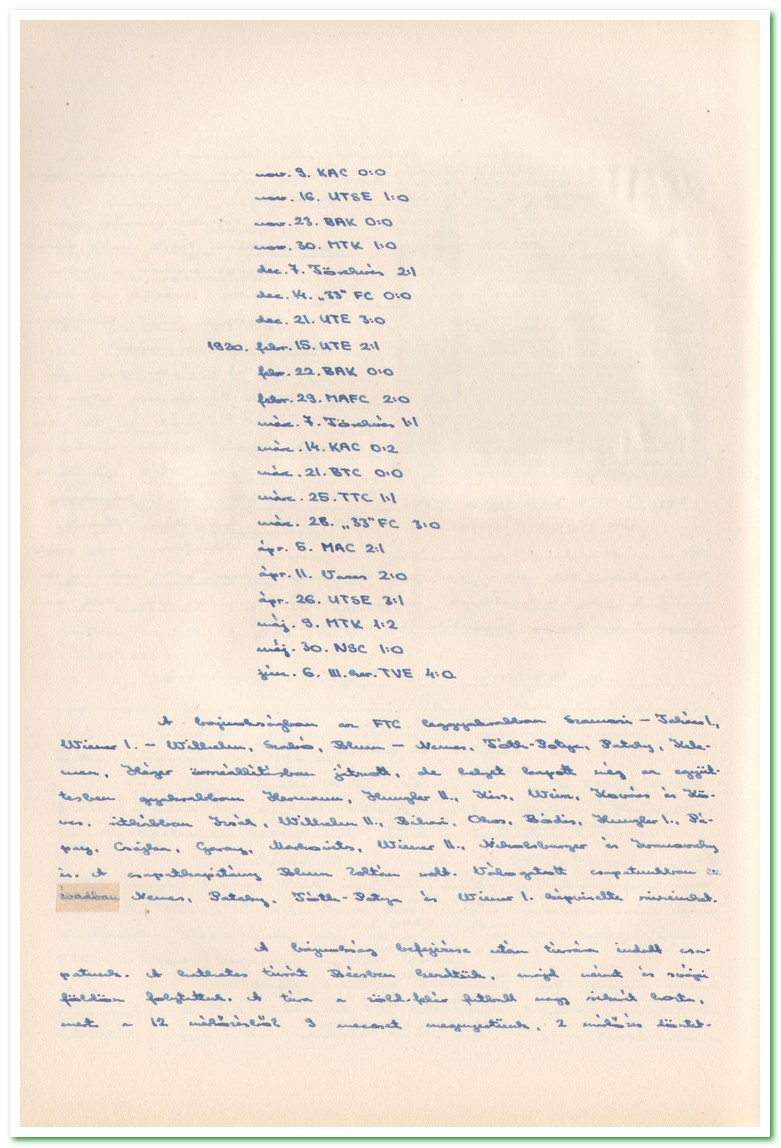 nov. 9. KAC 0:0
nov. 16. UTSE 1:0
nov. 23. BAK 0:0
nov. 30. MTK 1:0
dec. 7. Törekvés 2:1
dec. 14. „33" FC 0:0
dec. 21. UTE 3:0
1920. febr. 15. UTE 2:1
febr. 22. BAK 0:0
febr. 29. MAFC 2:0
márc. 7. Törekvés 1:1
márc. 14. KAC 0:2
márc. 21. BTC 0:0
márc. 25. TTC 1:1
márc. 28. „33" FC 3:0
ápr. 5. MAC 2:1
ápr. 11. Vasas 2:0
ápr. 26. UTSE 3:1
máj. 9. MTK 1:2
máj. 30. NSC 1:0
jún. 6. III. ker. TVE 4:0
A bajnokságban az FTC leggyakrabban Szamosi – Takács I.,
Wiener I. – Wilhelm, Szabó, Blum – Nemes, Tóth-Potya, Pataky, Kele-
men, Héger összeállításban játszott, de helyet kapott még az együt-
tesben gyakrabban Hermann, Hungler II., Kiss, Wein, Kovács és Kö-
ves, ritkábban Izsák, Wilhelm II., Bihari, Okos, Bódis, Hungler I., Pá-
pay, Czéglen, Garay, Wiener II., Nikolsburger és
is. A csapatkapitány Blum Zoltán volt. Válogatott csapatunkban ez
évadban Nemes, Pataky, Tóth-Potya és Wiener I. képviselte színeinket.
A bajnokság befejezése után túrára indult csa-
patunk. A hathetes túrát Bécsben kezdtük, majd német és svájci
földön folytattuk. A túra a zöld-fehér futball nagy sikerét hozta,
mert a 12 mérkőzésből 9 meccset megnyertünk, 2 mérkőzés döntet-